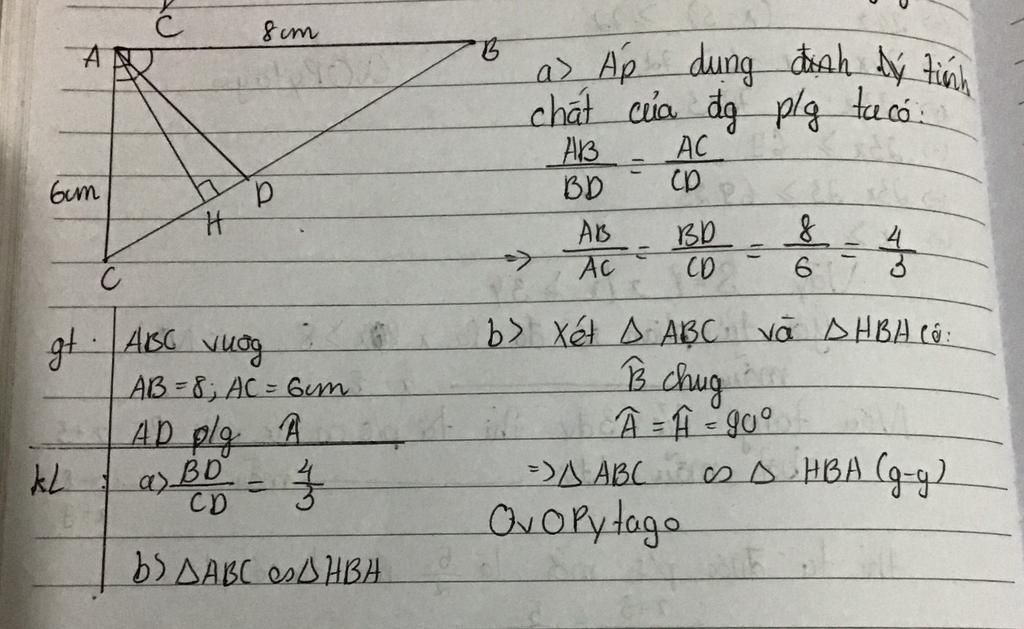 C
8cm
A
B
6cm
H
D
C
a> Áp dụng định lý tính
chất của đg p/g ta có:
AB/BD = AC/CD
=> AB/AC = BD/CD = 8/6 = 4/3
gt ABC vuog
AB = 8; AC = 6cm
AD p/g Â
kL a> BD/CD = 4/3
b> ΔABC ∽ ΔHBA
b> Xét Δ ABC và Δ HBA có:
B̂ chug
Â = Ĥ = 90°
=> Δ ABC ∽ Δ HBA (g-g)
OvOPytago